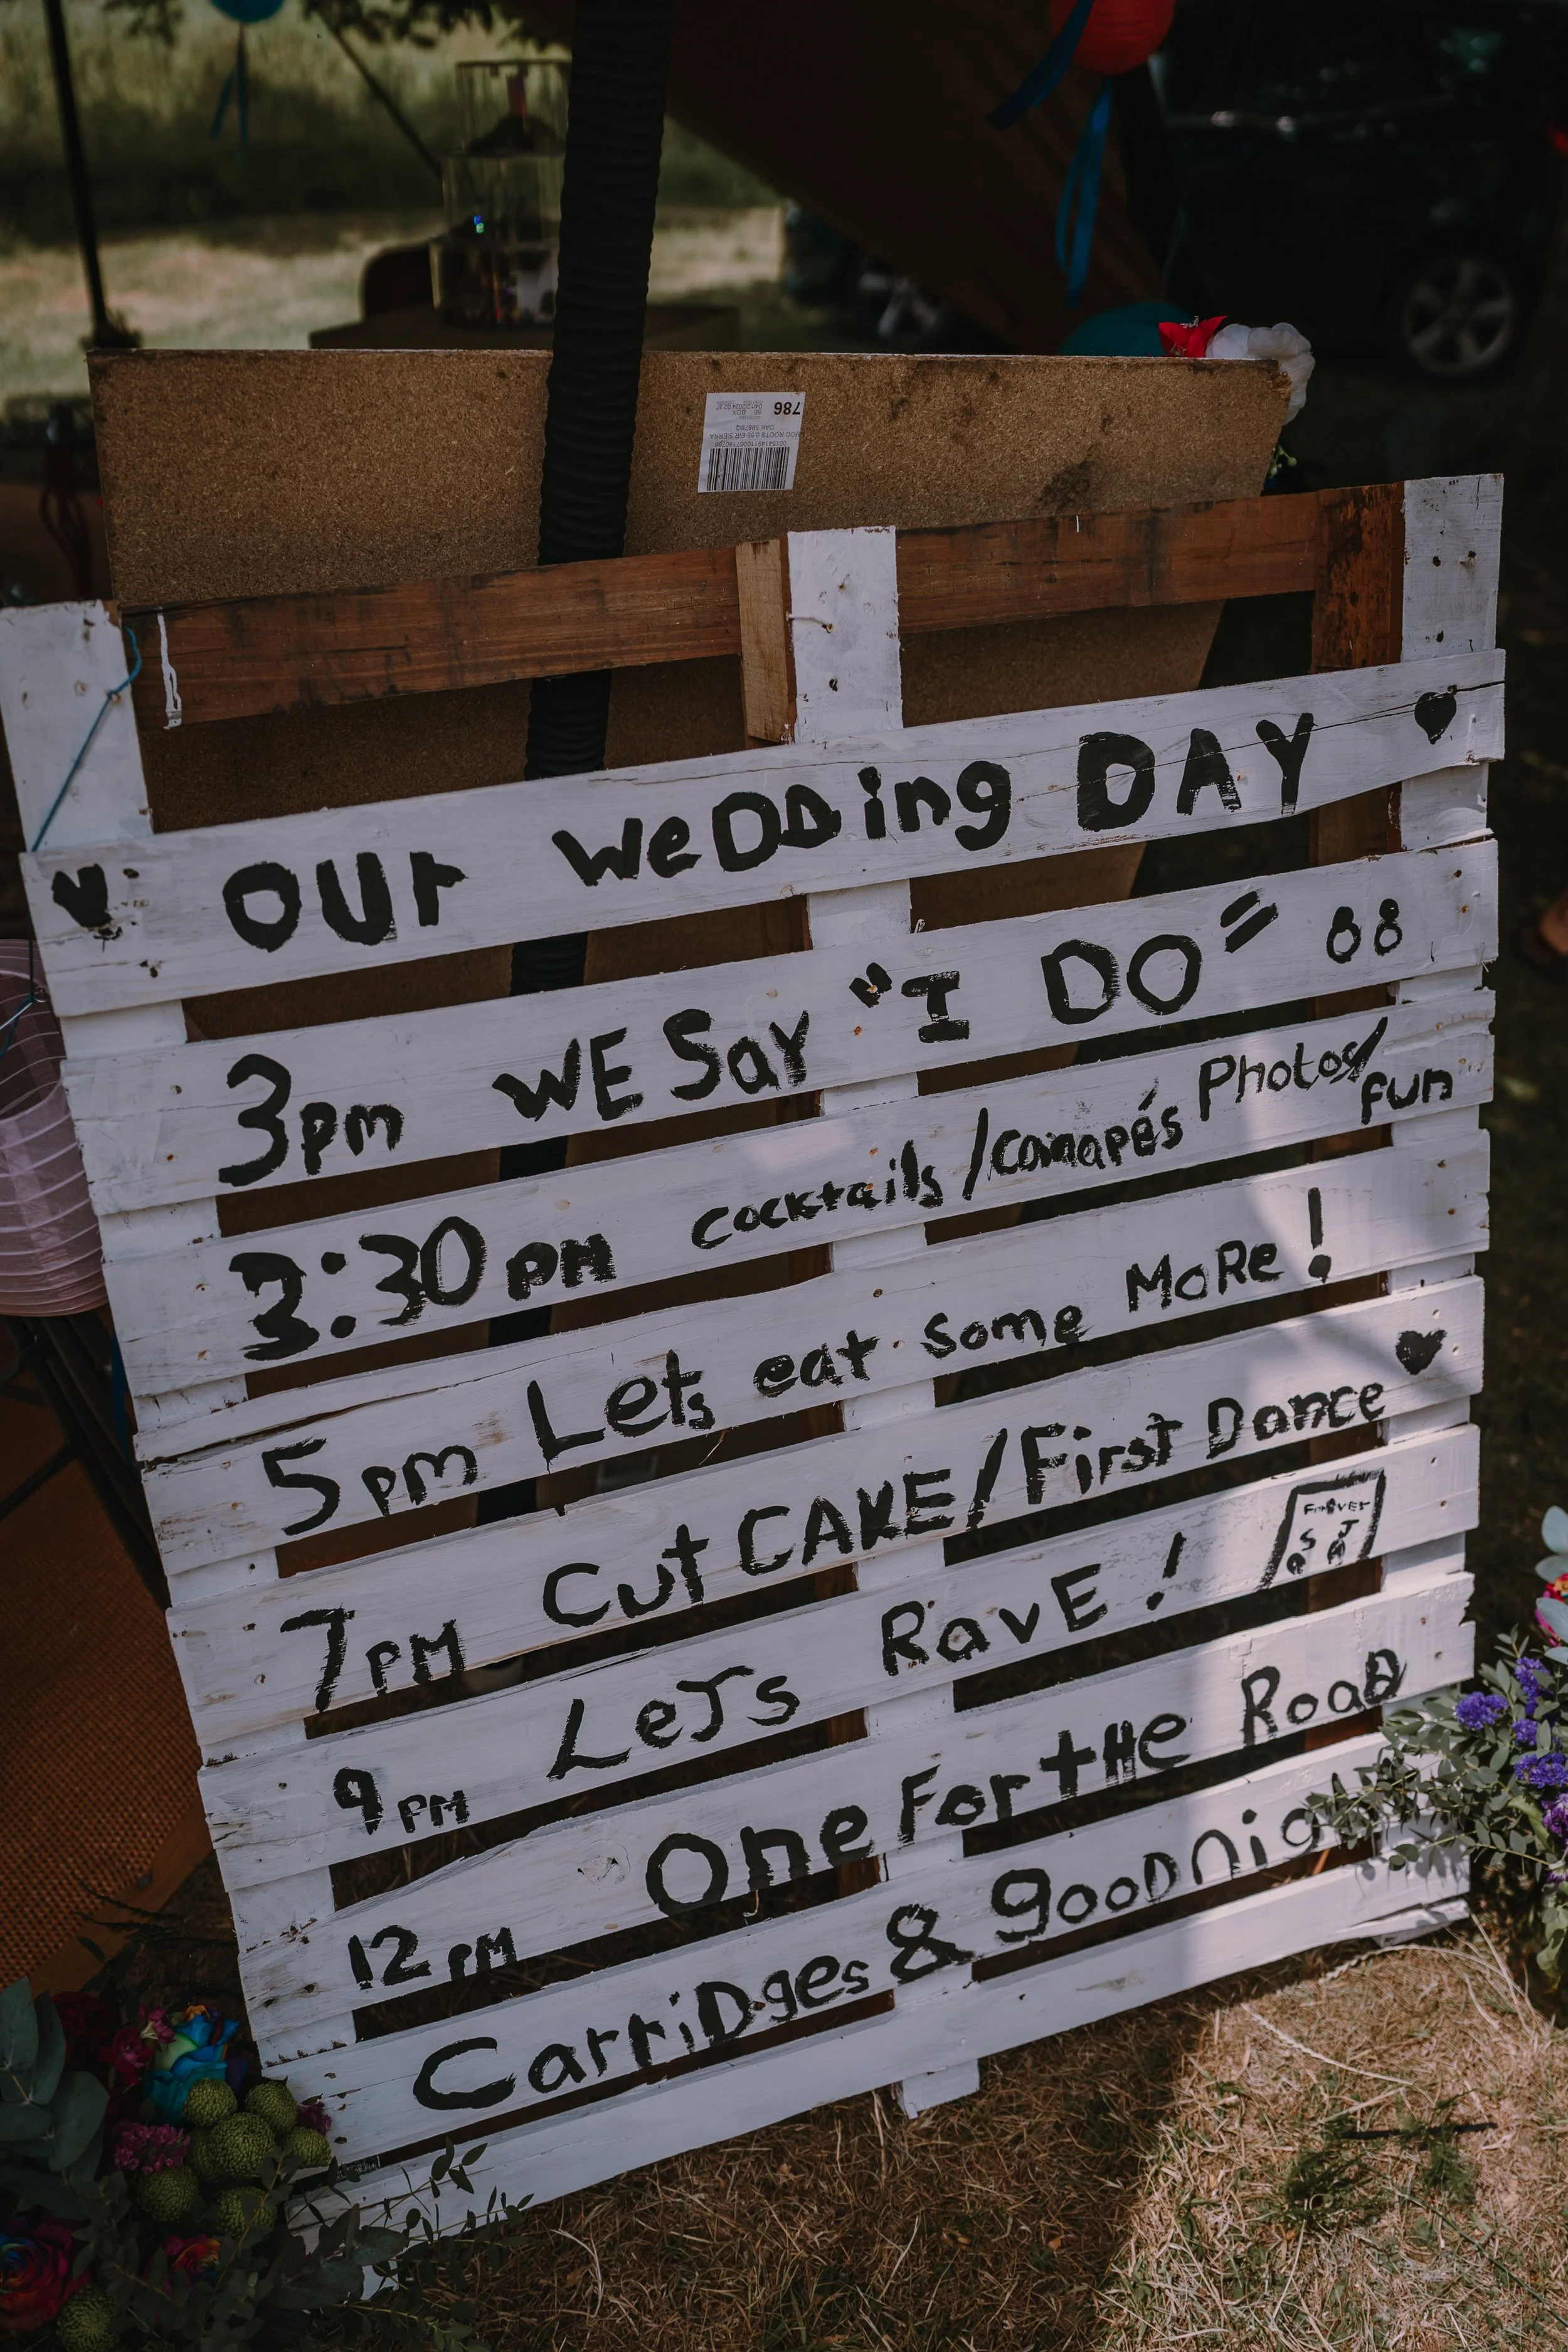 786
OUr WeDDing DAY
3pm WE Say "I DO"
3:30pm cocktails/canapés Photos/
fun
5pm Lets eat some MoRe!
7PM Cut CAKE/First Dance
9PM LeTs RavE!
FOREVER
S J
12PM One For tHe RoaD
CarriDges & gooDnight